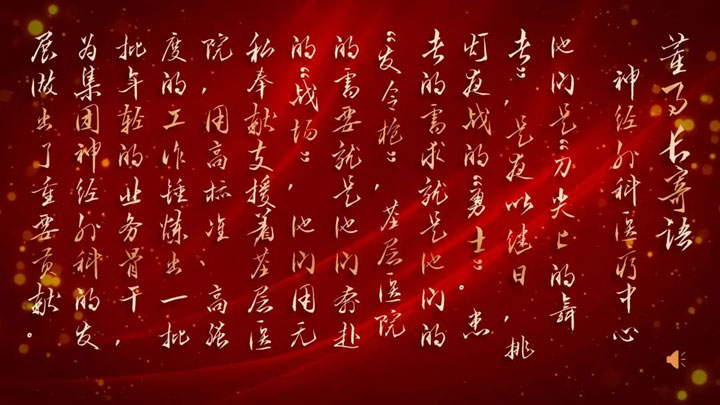 董事长寄语
神经外科医疗中心
他们是“刀尖上的舞
者”，是夜以继日，挑
灯夜战的“勇士”。患
者的需求就是他们的
“发令枪”，基层医院
的需要就是他们奔赴
的“战场”，他们用无
私奉献支援着基层医
院，用高标准、高强
度的工作锤炼出一批
批年轻的业务骨干，
为集团神经外科的发
展做出了重要贡献。